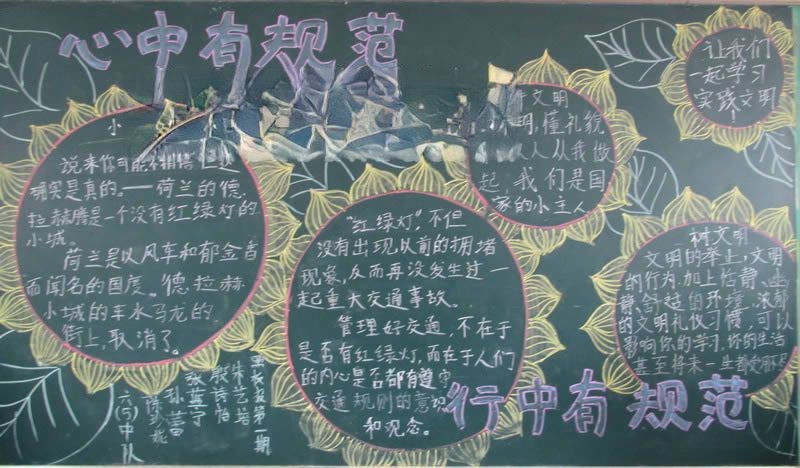 心中有规范
小
说来你可能不相信 但这
现实是真的。——荷兰的德
拉赫腾是一个没有红绿灯的
小城。
荷兰是以风车和郁金香
而闻名的国度。德拉赫
小城的车水马龙的
街上,取消了。
"红绿灯",不但
没有出现以前的拥堵
现象,反而再没发生过一
起重大交通事故。
管理好交通,不在于
是否有红绿灯,而在于人们
的内心是否都有遵守
交通规则的意识
和观念。
文明
明,懂礼貌
人人从我做
起,我们是国
家的小主人
让我们
一起学习
实践文明
!
树文明
文明的举止,文明
的行为,加上恬静、幽
静、舒适的环境,浓郁
的文明礼仪习惯,可以
影响你的学习,你的生活
甚至将来一生
行中有规范
黑板报第一期
六(5)中队